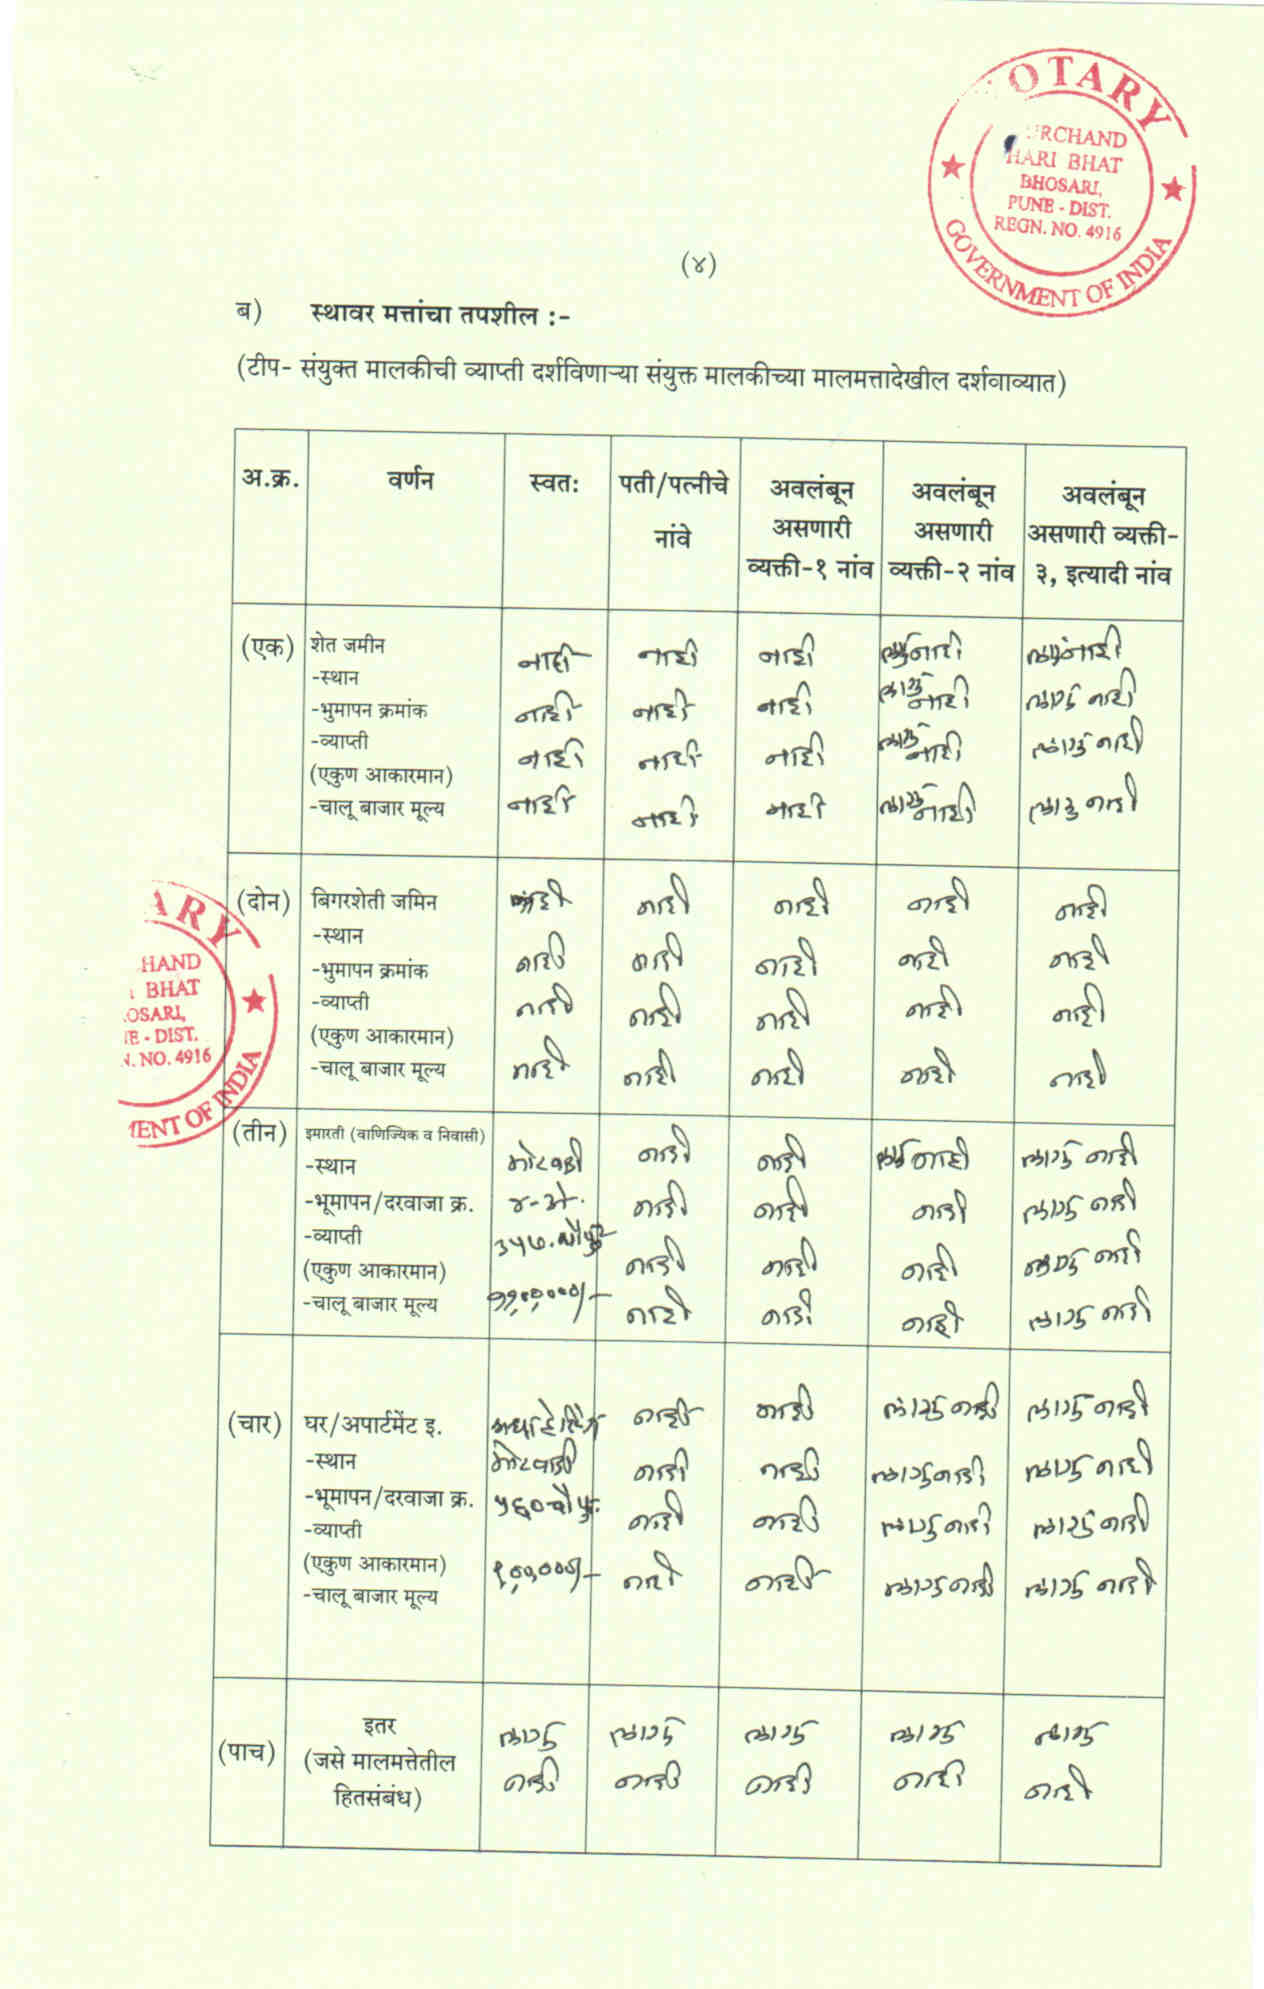 NOTARY
URCHAND
HARI BHAT
BHOSARI,
PUNE - DIST.
REGN. NO. 4916
GOVERNMENT OF INDIA
(४)
ब) स्थावर मत्तांचा तपशील :-
(टीप- संयुक्त मालकीची व्याप्ती दर्शविणाऱ्या संयुक्त मालकीच्या मालमत्तादेखील दर्शवाव्यात)
अ.क्र. वर्णन स्वतः पती/पत्नीचे नांवे अवलंबून असणारी व्यक्ती-१ नांव अवलंबून असणारी व्यक्ती-२ नांव अवलंबून असणारी व्यक्ती-३, इत्यादी नांव
(एक) शेत जमीन
-स्थान नाही नाही नाही लागू नाही लागू नाही
-भुमापन क्रमांक नाही नाही नाही लागू नाही लागू नाही
-व्याप्ती नाही नाही नाही लागू नाही लागू नाही
(एकुण आकारमान)
-चालू बाजार मूल्य नाही नाही नाही लागू नाही लागू नाही
(दोन) बिगरशेती जमिन नाही नाही नाही नाही नाही
-स्थान
-भुमापन क्रमांक नाही नाही नाही नाही नाही
-व्याप्ती नाही नाही नाही नाही नाही
(एकुण आकारमान)
-चालू बाजार मूल्य नाही नाही नाही नाही नाही
ARY
HAND
BHAT
OSARI,
NE - DIST.
N. NO. 4916
MENT OF INDIA
(तीन) इमारती (वाणिज्यिक व निवासी)
-स्थान मोरवाडी नाही नाही लागू नाही लागू नाही
-भूमापन/दरवाजा क्र. नाही नाही नाही लागू नाही
-व्याप्ती ३५७.चौ फुट नाही नाही नाही लागू नाही
(एकुण आकारमान)
-चालू बाजार मूल्य नाही नाही नाही लागू नाही
(चार) घर/अपार्टमेंट इ. नाही नाही लागू नाही लागू नाही
-स्थान मोरवाडी नाही नाही लागू नाही लागू नाही
-भूमापन/दरवाजा क्र. ५६० चौ फु. नाही नाही लागू नाही लागू नाही
-व्याप्ती
(एकुण आकारमान) नाही नाही लागू नाही लागू नाही
-चालू बाजार मूल्य
(पाच) इतर लागू लागू लागू लागू लागू
(जसे मालमत्तेतील नाही नाही नाही नाही नाही
हितसंबंध)